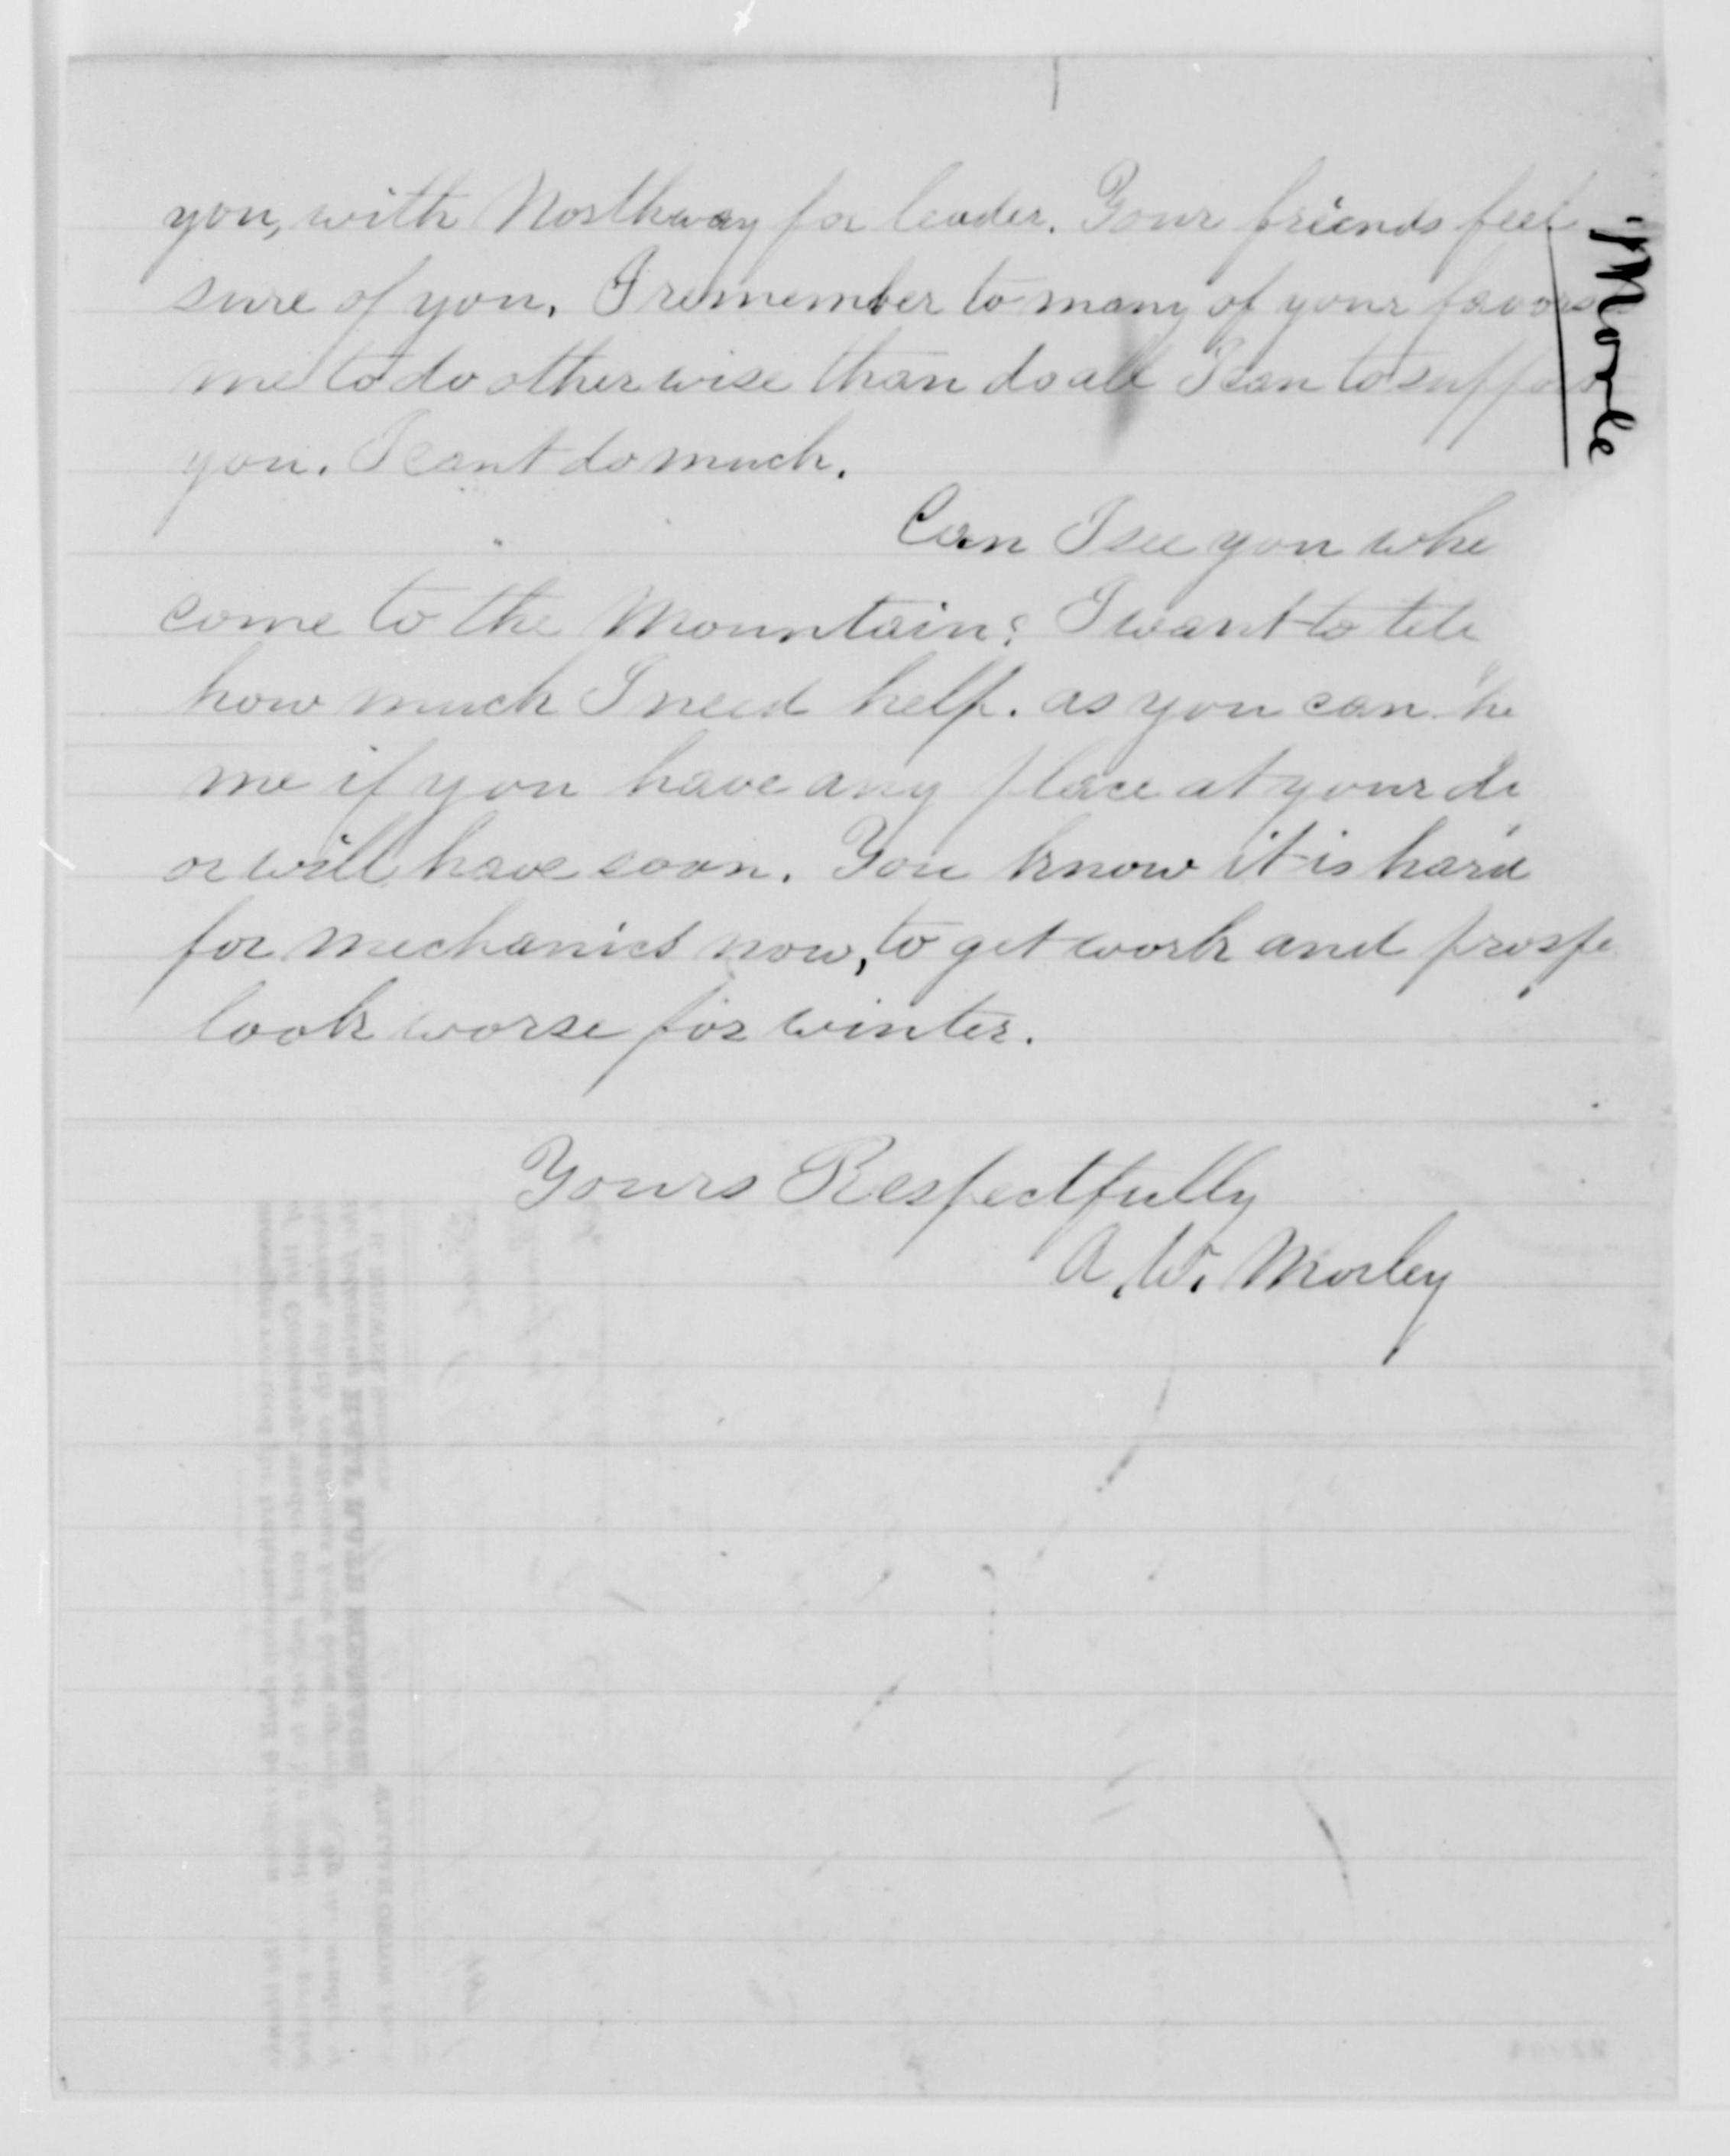 you, with Northway for leader. Your friends feel
sure of you. I remember to many of your favors
me to do otherwise than do all I can to suppor
you. I cant do much.
Can I see you whe
come to the Mountain? I want to tell
how much I need help. as you can he
me if you have any place at your di
or will have soon. You know it is hard
for mechanics now, to get work and prospe
look worse for winter.
Yours Respectfully
A. W. Morley
Morle